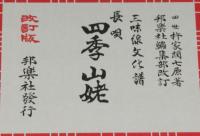 四世杵家彌七原著
邦樂社編集部改訂
三味線文化譜
長唄
四季山姥
改訂版
邦樂社發行